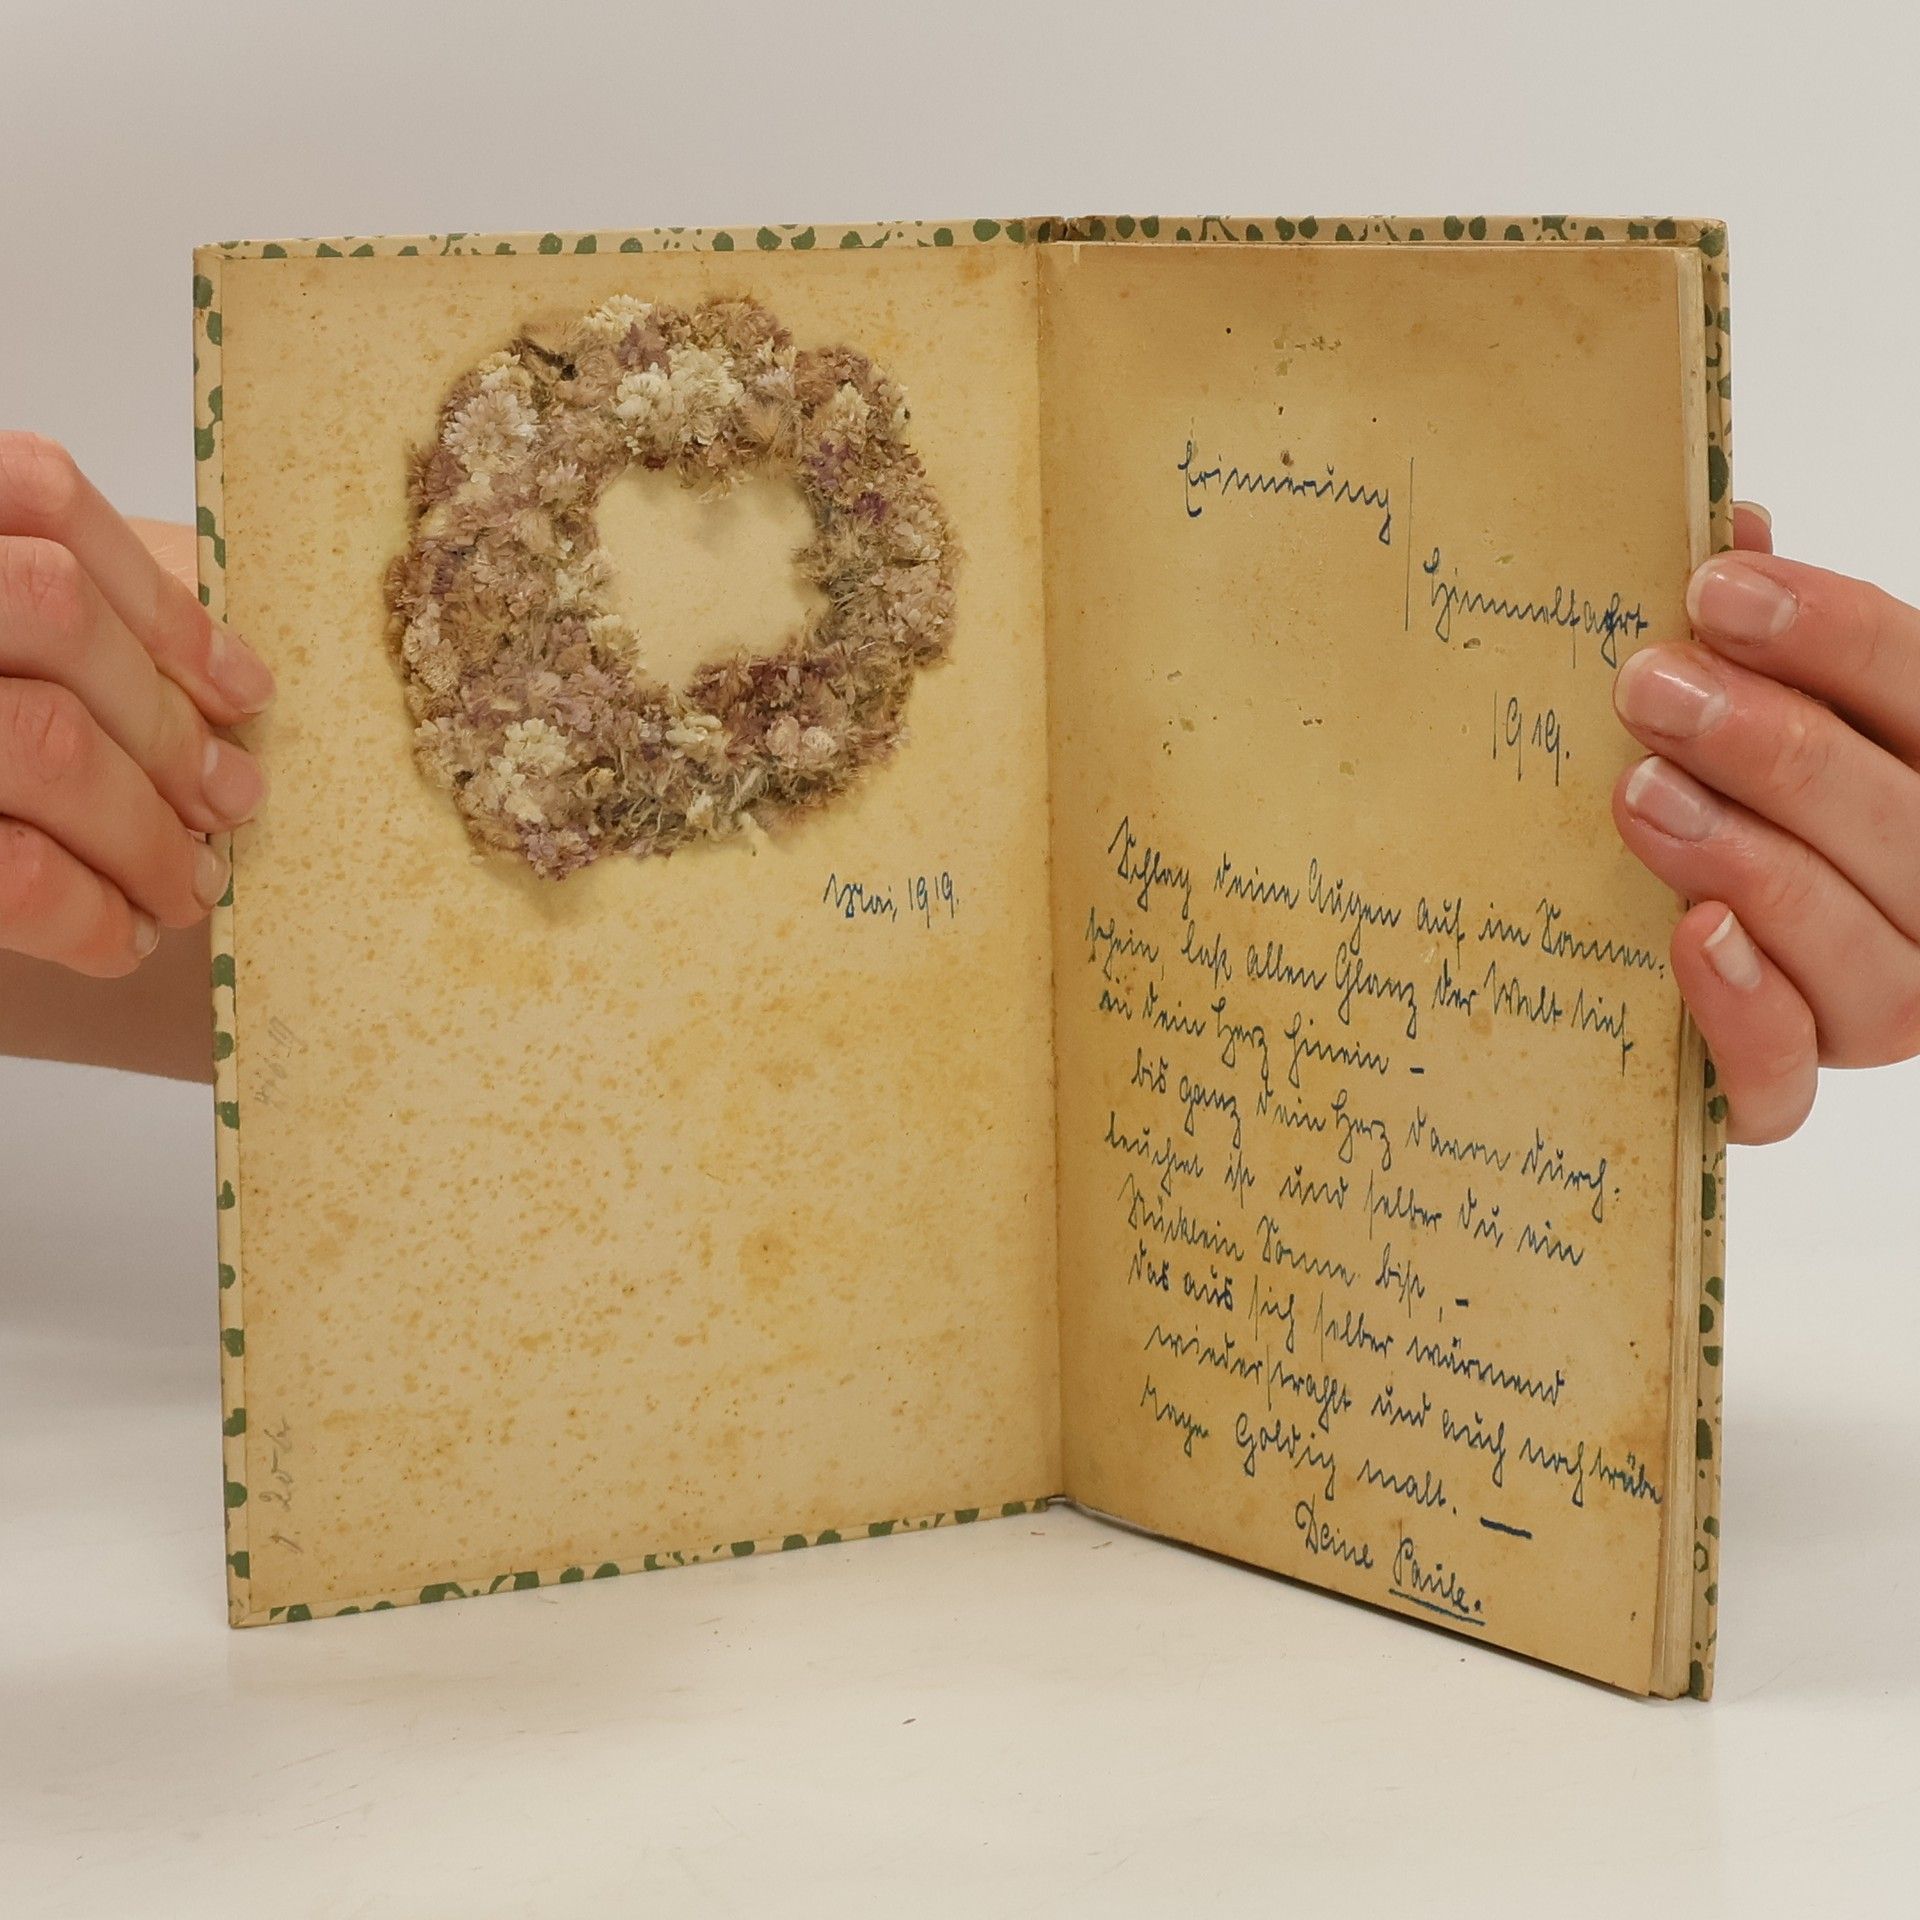 Mai, 1919.
Erinnerung
Himmelfahrt
1919.
Schlag deine Augen auf im Sonnen:
schein, laß allen Glanz der Welt tief
in dein Herz hinein –
bis ganz dein Herz davon durch:
leuchtet ist und selber du ein
Stücklein Sonne bist, –
das aus sich selber wärmend
wiederstrahlt und auch noch trübe
Tage Goldig malt. —
Deine Paula.